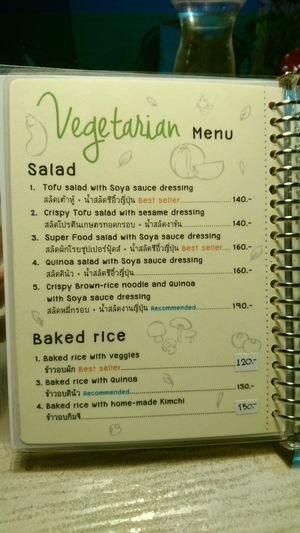 Vegetarian Menu
Salad
1. Tofu salad with Soya sauce dressing
สลัดเต้าหู้ + น้ำสลัดซีอิ๊วญี่ปุ่น Best seller 140.-
2. Crispy Tofu salad with sesame dressing
สลัดโปรตีนเกษตรทอดกรอบ + น้ำสลัดงาข้น 140.-
3. Super Food salad with Soya sauce dressing
สลัดผักโรยซุปเปอร์ฟู้ดส์ + น้ำสลัดซีอิ๊วญี่ปุ่น Best seller 160.-
4. Quinoa salad with Soya sauce dressing
สลัดคินัว + น้ำสลัดซีอิ๊วญี่ปุ่น 160.-
5. Crispy Brown-rice noodle and quinoa
with Soya sauce dressing
สลัดหมี่กรอบ + น้ำสลัดงาญี่ปุ่น Recommended 190.-
Baked rice
1. Baked rice with veggies
ข้าวอบผัก Best seller 120.-
3. Baked rice with quinoa
ข้าวอบคินัว Recommended 130.-
4. Baked rice with home-made Kimchi
ข้าวอบกิมจิ 150.-